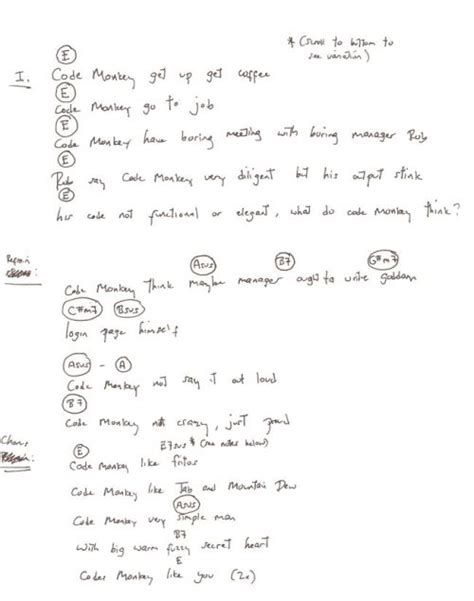 * (scroll to bottom to
see variation)
E
I. Code Monkey get up get coffee
E
Code Monkey go to job
E
Code Monkey have boring meeting with boring manager Rob
E
Rob say Code Monkey very diligent but his output stink
E
his code not functional or elegant, what do code monkey think?
Asus B7 G#m7
Code Monkey think maybe manager ought to write goddam
C#m7 Bsus
login page himself
Asus - A
Code Monkey not say it out loud
B7
Code Monkey not crazy, just proud
Chorus:
E E7sus * (see notes below)
Code Monkey like fritos
Code Monkey like Tab and Mountain Dew
Asus
Code Monkey very simple man
B7
with big warm fuzzy secret heart
E
Code Monkey like you (2x)